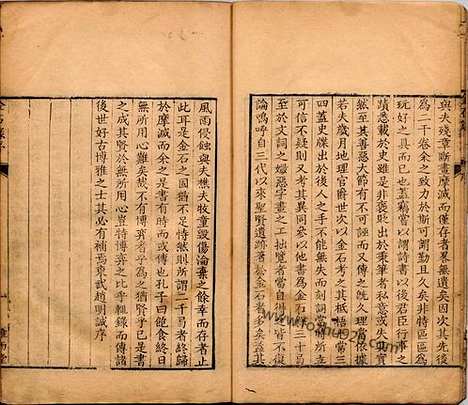 與夫殘章斷畫磨滅而僅存者畧無遺矣因次其先後
為二千卷余之致力於斯可謂勤且久矣非特區區為
玩好之具而已也蓋竊嘗以謂詩書以後君臣行事之
蹟悉載於史雖是非褒貶出於秉筆者私意或失其實
然至其善惡大節有不可誣而又傳之既久理當依據
若夫歲月地理官爵世次以金石考之其牴牾十常三
四蓋史牒出於後人之手不能無失而刻詞當時所立
則又考其異同參以他書為金石錄三十卷
至於文詞之媺惡字畫之工拙覽者當自得之皆不復
論嗚呼自三代以來聖賢遺跡著於金石者多矣蓋其
風雨侵蝕與夫樵夫牧童毀傷淪棄之餘幸而存者止
此耳是金石之固猶不足恃然則所謂二千卷者終歸
於摩滅而余之是書有時而或傳也孔子曰飽食終日
無所用心難矣哉不有博弈者乎為之猶賢乎已是書
之成其賢於無所用心豈特博弈之比乎輒錄而傳諸
後世好古博雅之士其必有補焉東武趙明誠序